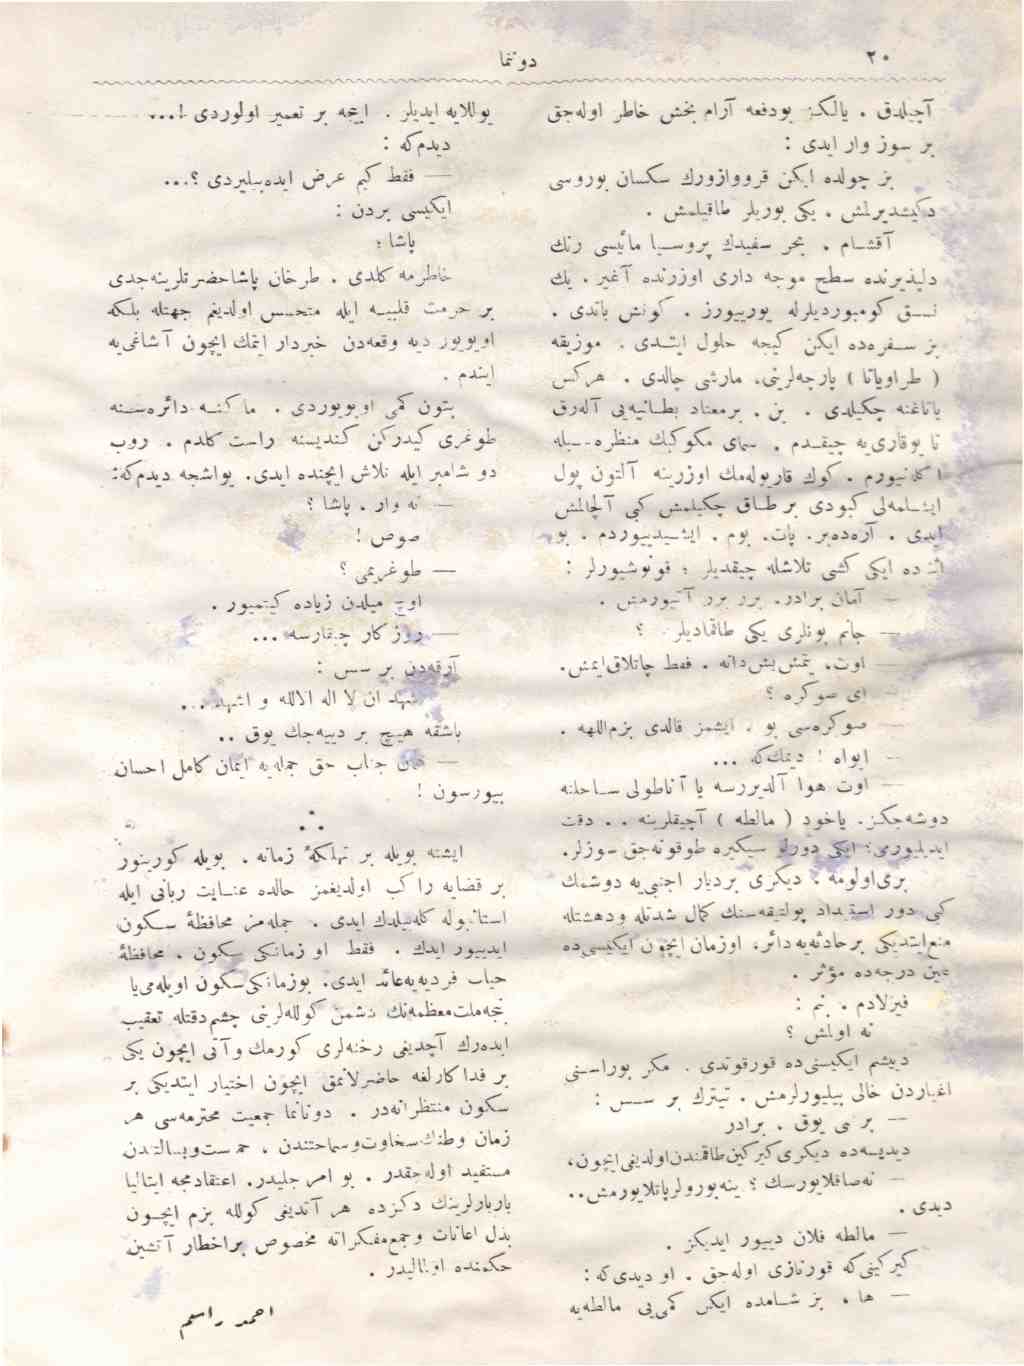 ٢٠
دوننما
آچیلدق . یالکز بودفعه آرام بخش خاطر اوله‌جق
بر سوز وار ایدی :
بز چولده ایکن قرووازورك سکسان بوروسی
دکیشدیرلمش . یکی بوریلر طاقیلمش .
آقشام . بحر سفیدك پروسیا مائیسی رنك
دلپذیرنده سطح موجه داری اوزرنده آغیر . یك
نسق کومبوردیلرله یورییورز . کونش باتدی .
بز سفره‌ده ایکن کیجه حلول ایتدی . موزیقه
( طراویاتا ) پارچه‌لرینی، مارشی چالدی . هرکس
یاتاغنه چکیلدی . بن ، برمعتاد بطانیه‌یی آله‌رق
تا یوقاری‌یه چیقدم . سمای مکوکبك منظره‌سیله
اکلنیورم . کوك قاریوله‌مك اوزرینه آلتون پول
ایشلمه‌لی کبودی بر طاق چکیلمش کبی آلچالمش
ایدی . آره‌ده‌بر. پات. بوم . ایشیدییوردم . بو
اثناده ایکی کشی تلاشله چیقدیلر ؛ قونوشیورلر :
— آمان برادر. برر برر آتیورمش .
— جانم بونلری یکی طاقمادیلرمی ؟
— اوت، یتمش‌بش‌دانه . فقط چاتلاق‌ایمش.
— ای صوکره ؟
— صوکره‌سی بو . ایشمز قالدی بزم‌اللهه .
— ایواه ! دیمك‌که ...
— اوت هوا آلدیررسه یا آناطولی ساحلنه
دوشه‌جکز. یاخود ( مالطه ) آچیقلرینه . . دقت
ایدیلیورمی؛ ایکی دورلو سیکیره طوقونه‌جق سوزلر.
بری‌اولومه . دیکری بردیار اجنبی‌یه دوشمك
کبی دور استبداد پولتیقه‌سنك کمال شدتله ودهشتله
منع‌ایتدیکی برحادثه‌یه دائر، اوزمان ایچون ایکیسی‌ده
عین درجه‌ده مؤثر .
فیرلادم . بنم :
نه اولمش ؟
دییشم ایکیسنی‌ده قورقوتدی . مکر بوراسنی
اغیاردن خالی بیلیورلرمش . تیترك بر سس :
— بر شی یوق . برادر
دیدیسه‌ده دیکری‌کیرکین‌طاقمندن‌اولدیغی‌ایچون،
— نه‌صاقلایورسك ؟ ینه‌بورولرپاتلایورمش..
دیدی .
— مالطه فلان دییور ایدیکز .
کیرکینی‌که قورنازی اوله‌جق . او دیدی‌که :
— ها ، بز شامده ایکن کمی‌یی مالطه‌یه
یوللایه ایدیلر . ایجه بر تعمیر اولوردی !...
دیدم‌که :
— فقط کیم عرض ایده‌بیلیردی ؟...
ایکیسی بردن :
پاشا ؛
خاطرمه کلدی . طرخان پاشاحضرتلرینه‌جدی
بر حرمت قلبیه ایله متحسس اولدیغم جهتله بلکه
اویویور دیه وقعه‌دن خبردار ایتمك ایچون آشاغی‌یه
ایندم .
بتون کمی اویویوردی . ماکنه دائره‌سنه
طوغری کیدرکن کندیسنه راست کلدم . روب
دو شامبر ایله تلاش ایچنده ایدی. یواشجه دیدم‌که:
— نه وار . پاشا ؟
صوص !
— طوغریمی ؟
اوچ میلدن زیاده کیتمیور .
— روزکار چیقارسه ...
آرقه‌دن بر سس :
اشهد ان لا اله الالله و اشهد ...
باشقه هیچ بر دییه‌جك یوق ..
— جناب حق جمله‌یه ایمان کامل احسان
بیورسون !
ایشته بویله بر تهلکهٔ زمانه . بویله کورینور
بر قضایه راکب اولدیغمز حالده عنایت ربانی ایله
استانبوله کله‌بیلدك ایدی . جمله‌مز محافظهٔ سکون
ایدییور ایدك . فقط او زمانکی سکون . محافظهٔ
حیاب فردیه‌یه‌عائد ایدی. بوزمانکی‌سکون اویله‌می‌یا
نجه‌ملت‌معظمه‌نك دشمن کولله‌لرینی چشم‌دقتله تعقیب
ایده‌رك آچدیغی رخنه‌لری کورمك وآتی ایچون یکی
بر فداکارلغه حاضرلانمق ایچون اختیار ایتدیکی بر
سکون منتظرانه‌در . دوناما جمعیت محترمه‌سی هر
زمان وطنك‌سخاوت‌وسماحتندن ، حمیت‌وبسالتندن
مستفید اوله‌جقدر . بو امر جلیدر. اعتقادمجه ایتالیا
باربارلرینك دکزده هر آتدیغی کولله بزم ایچون
بذل اعانات وجمع‌مفکرانه مخصوص براخطار آتشین
حکمنده اولمالیدر .
احمد راسم